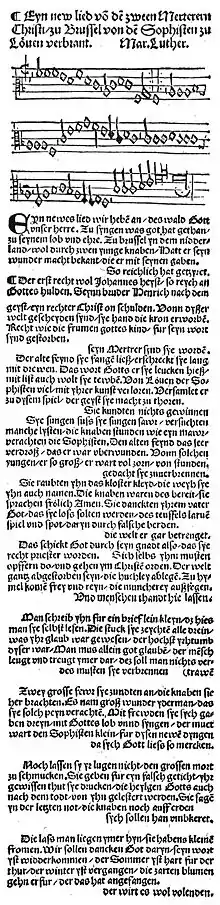 ¶ Eyn new lied võ dẽ zween Merterern
Christi / zu Brussel von dẽ Sophisten zu
Löuen verbrant. Mar. Luther.
EYn newes lied wir hebẽ an / des wald Gott
vnser herre. Zu syngen was got hat gethan /
zu seynem lob vnd ehre. Zu brussel yn dem nider-
land / wol durch zwen yunge knaben / Hatt er seyn
wunder macht bekant / die er mit seynen gaben.
So reichlich hat getzyret.
¶ Der erst recht wol Johannes heyst / so reych an
Gottes hulden. Seynn bruder Henrich nach dem
geyst / eyn rechter Christ on schulden. Vonn dyßer
welt gescheyden synd / sye hand die kron erworbẽ.
Recht wie die frumen gottes kind / fur seyn wort
synd gestorben.
seyn Mertrer synd sye wordẽ.
Der alte feynd sye fangẽ ließ / erschreckt sye lang
mit drewen. Das wort Gottes er sye leucken hieß /
mit list auch wolt sye tewbẽ. Von Löuen der So-
phisten viel / mit yhrer kunst verloren. Versamlet er
zu dysem spiel / der geyst sye macht zu thoren.
Sie kundten nichts gewinnen
Sye sungen suß / sye sungen saur / versuchten
manche lysten / die knaben stunden wie eyn maur /
verachten die Sophisten. Den alten feynd das seer
verdroß / das er war vberwunden. Vonn solchen
yungen / er so groß / er wart vol zorn / von stunden,
gedacht sye zuuerbrennen.
Sie raubten yhn das kloster kleyd / die weyh sye
yhn auch namen. Die knaben waren des bereit / sie
sprachen frölich Amen. Sie dancketen yhrem vater
Got / das sye loß solten werden / des teuffels laruẽ
spiel vnd spot / dar yn durch falsche berden.
die welt er gar betreuget.
Das schickt Got durch seyn gnadt also / das sye
recht priester worden. Sich selbs yhm musten
opffern do / vnd gehen ym Christẽ orden. Der welt
gantz abgestorben seyn / die heuchley ablegẽ. Zu hy-
mel komẽ frey vnd reyn / die muncherey außfegen.
Vnd menschen thandt hie lassen.
Man schreib yhn fur ein brieflein kleyn / dz hies
man sye selbst lesen. Die stuck sye zeychtẽ alle drein /
was yhr glaub war gewesen / der hochst yrhtumb
dyser war / Man mus allein got glaubẽ / der mẽsch
leugt vnd treugt ymer dar / des soll man nichts ver-
des musten sye verbrennen (trawẽ
Zwey grosse fewr sye zundten an / die knaben sie
her brachten. Es nam groß wunder yderman / das
sye solch peyn verachtẽ. Mit freuden sye sych ga-
ben dreyn / mit Gottes lob vnnd syngen / der muet
wart den Sophisten klein / fur dysen newẽ dyngen
da sych Gott ließ so mercken.
Noch lassen sy yr lugen nicht / den grossen mort
zu schmucken. Sie geben fur eyn falsch geticht / yhr
gewissen thut sye drucken / die heylgen Gotts auch
nach dem todt / von yhn gelestert werden. Sie sagẽ
yn der letzten not / die knaben noch auff erden
sych sollen han vmbkeret.
Die laß man liegen ymer hyn / sie habens kleinẽ
fromen. Wir sollen dancken Got daryn / seyn wort
yst widderkommen / der Sommer yst hart fur der
thur / der winter yst vergangen / die zarten blumen
gehn er fur / der das hat angefangen.
der wirt es wol volenden.